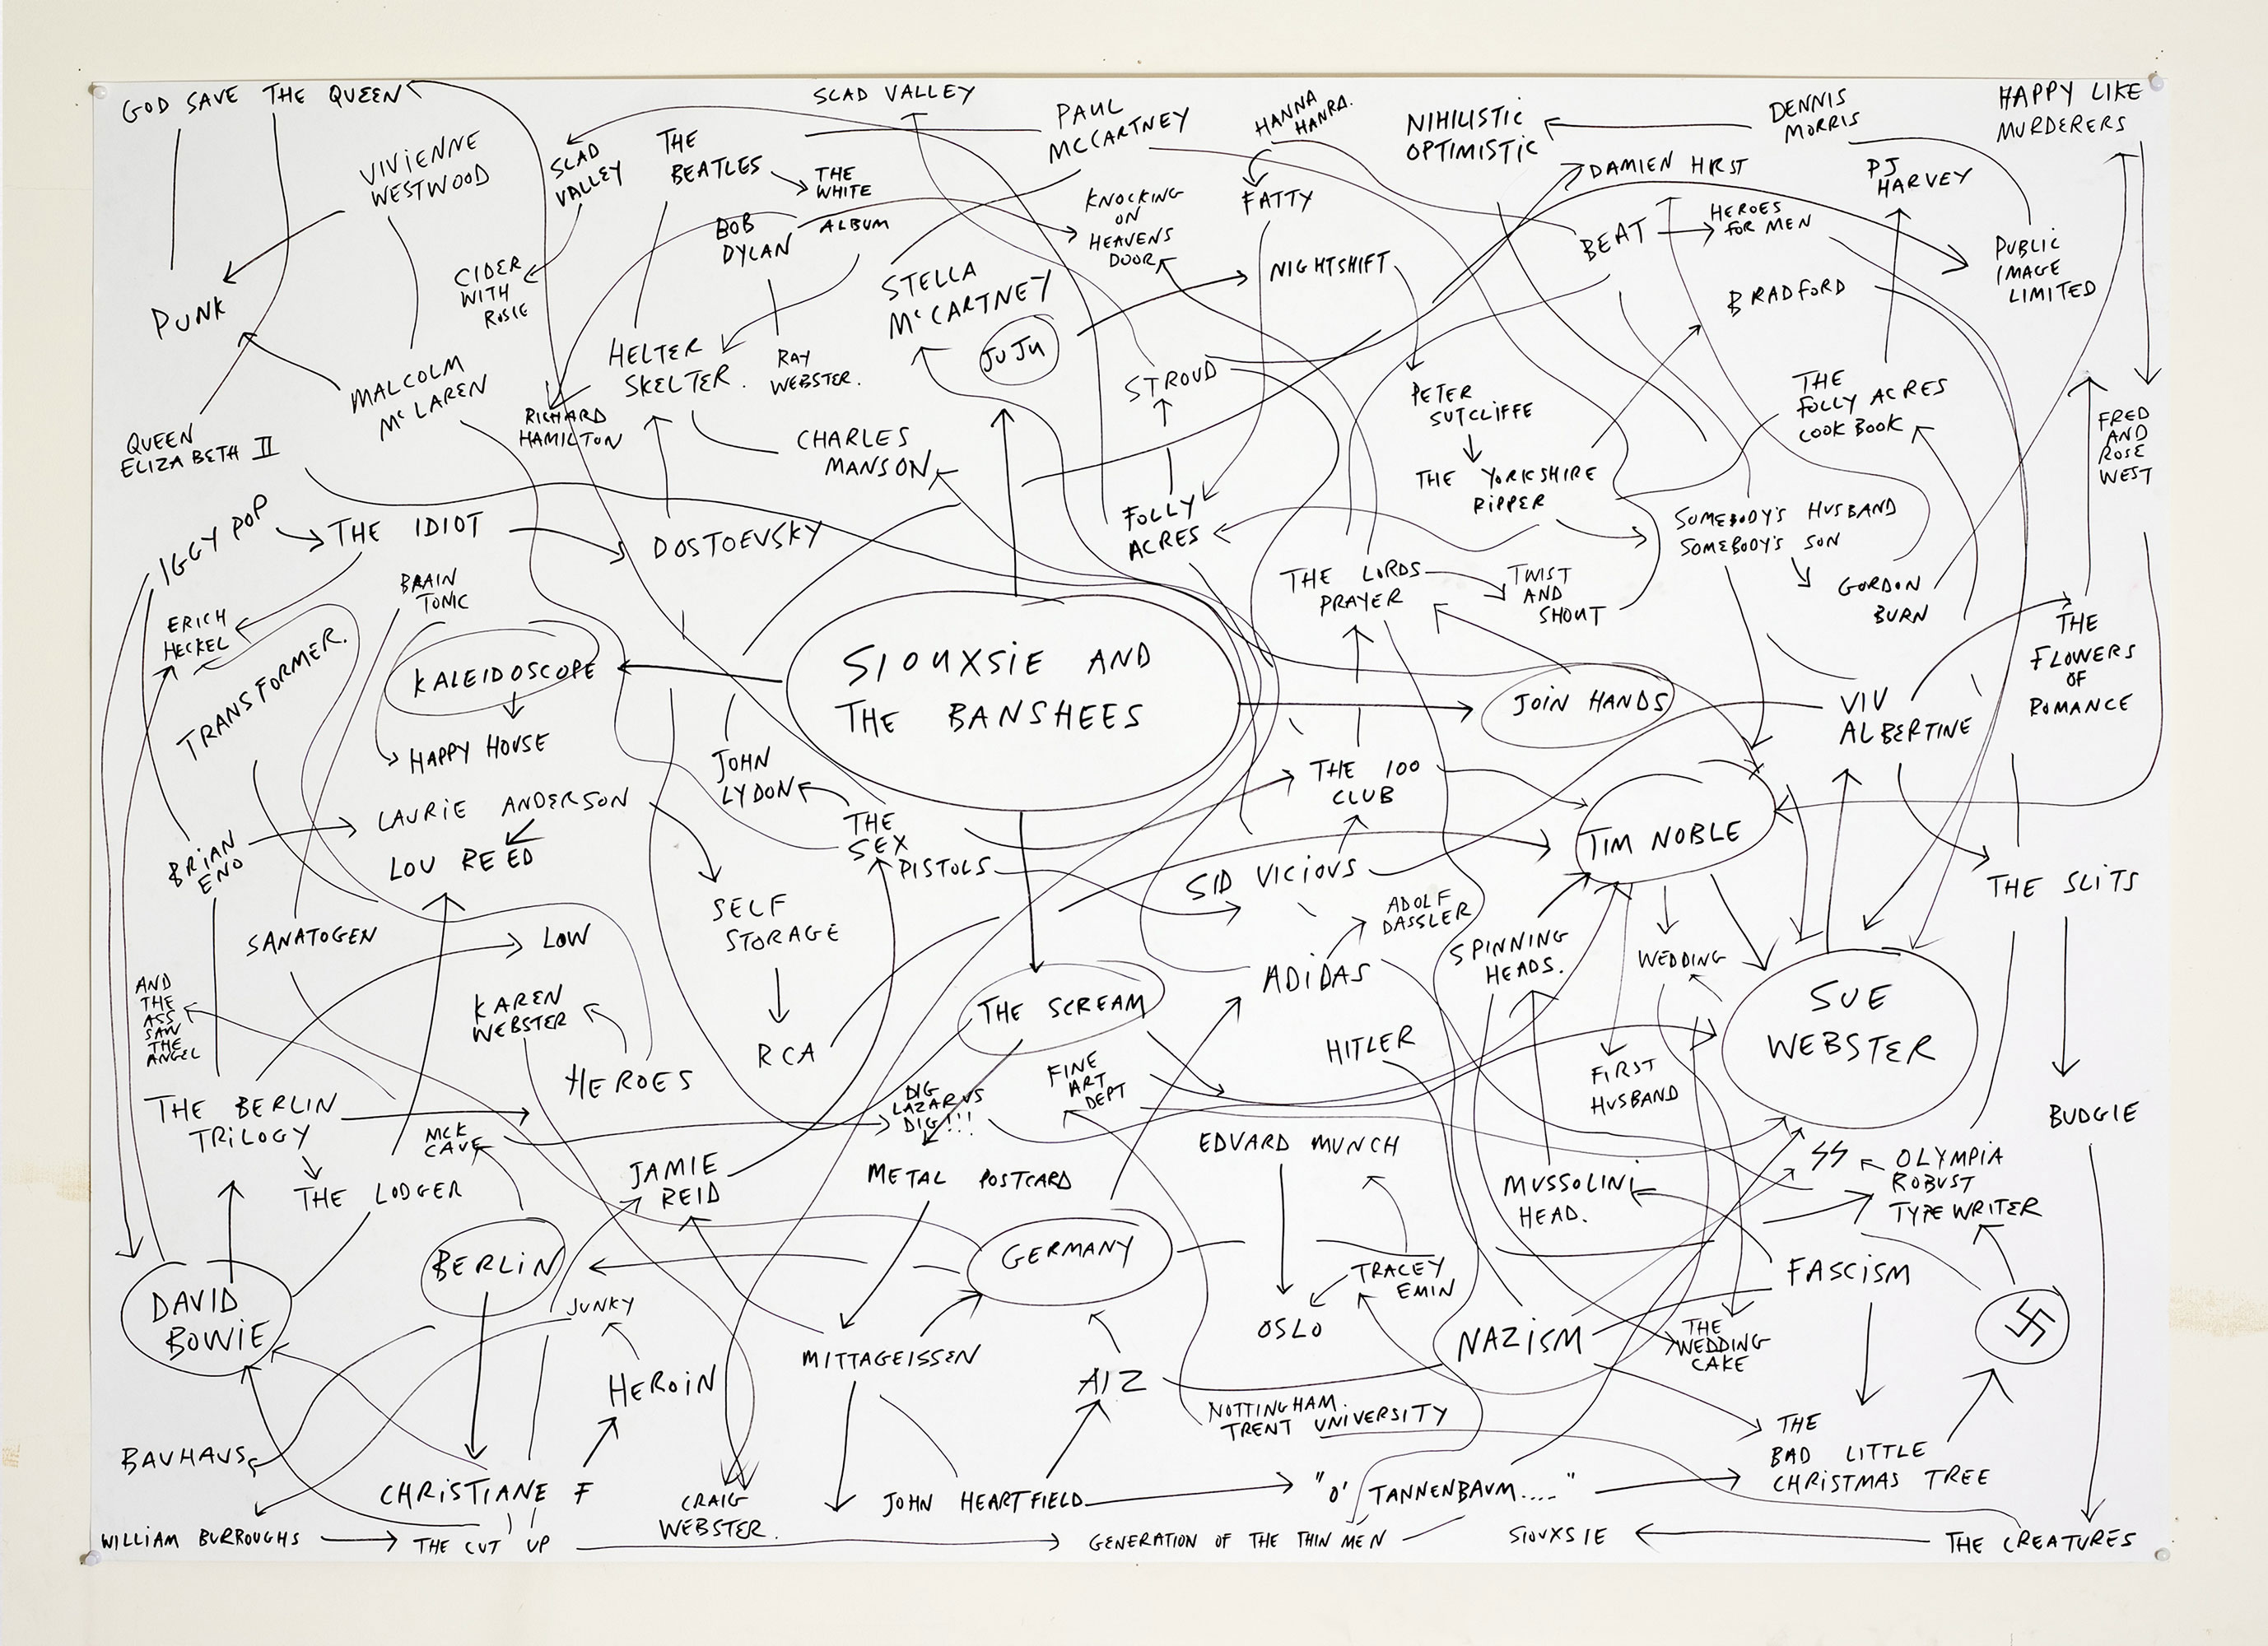 GOD SAVE THE QUEEN
SLAD VALLEY
PAUL
MCCARTNEY
HANNA
HANRA.
NIHILISTIC
OPTIMISTIC
DENNIS
MORRIS
HAPPY LIKE
MURDERERS
VIVIENNE
WESTWOOD
SLAD
VALLEY
THE
BEATLES
THE
WHITE
ALBUM
BOB
DYLAN
KNOCKING
ON
HEAVENS
DOOR
FATTY
DAMIEN HIRST
PJ
HARVEY
BEAT
HEROES
FOR MEN
PUBLIC
IMAGE
LIMITED
PUNK
CIDER
WITH
ROSIE
STELLA
McCARTNEY
NIGHTSHIFT
BRADFORD
MALCOLM
McLAREN
HELTER
SKELTER.
RAY
WEBSTER.
JUJU
STROUD
PETER
SUTCLIFFE
THE
FOLLY ACRES
COOK BOOK
FRED
AND
ROSE
WEST
QUEEN
ELIZABETH II
RICHARD
HAMILTON
CHARLES
MANSON
THE YORKSHIRE
RIPPER
IGGY POP
THE IDIOT
DOSTOEVSKY
FOLLY
ACRES
SOMEBODY'S HUSBAND
SOMEBODY'S SON
ERICH
HECKEL
BRAIN
TONIC
THE LORDS
PRAYER
TWIST
AND
SHOUT
GORDON
BURN
TRANSFORMER.
KALEIDOSCOPE
SIOUXSIE AND
THE BANSHEES
JOIN HANDS
VIV
ALBERTINE
THE
FLOWERS
OF
ROMANCE
HAPPY HOUSE
JOHN
LYDON
THE 100
CLUB
LAURIE ANDERSON
THE
SEX
PISTOLS
TIM NOBLE
BRIAN
ENO
LOU REED
SID VICIOUS
THE SLITS
SANATOGEN
LOW
SELF
STORAGE
ADOLF
DASSLER
SPINNING
HEADS.
WEDDING
AND
THE
ASS
SAW
THE
ANGEL
KAREN
WEBSTER
THE SCREAM
ADIDAS
SUE
WEBSTER
HEROES
RCA
FINE
ART
DEPT
HITLER
FIRST
HUSBAND
THE BERLIN
TRILOGY
DIG
LAZARUS
DIG!!!
NICK
CAVE
BUDGIE
THE LODGER
JAMIE
REID
METAL POSTCARD
EDVARD MUNCH
MUSSOLINI
HEAD.
SS
OLYMPIA
ROBUST
TYPEWRITER
DAVID
BOWIE
BERLIN
JUNKY
GERMANY
TRACEY
EMIN
FASCISM
OSLO
NAZISM
THE
WEDDING
CAKE
MITTAGEISSEN
HEROIN
AIZ
NOTTINGHAM.
TRENT UNIVERSITY
THE
BAD LITTLE
CHRISTMAS TREE
BAUHAUS
CHRISTIANE F
CRAIG
WEBSTER.
JOHN HEARTFIELD
"O' TANNENBAUM....."
WILLIAM BURROUGHS
THE CUT UP
GENERATION OF THE THIN MEN
SIOUXSIE
THE CREATURES